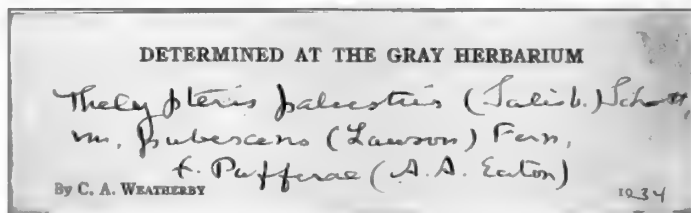 DETERMINED AT THE GRAY HERBARIUM
Thelypteris palustris (Salisb.) Schott,
var. pubescens (Lawson) Fern.
f. Pufferae (A. A. Eaton)
By C. A. WEATHERBY 1934